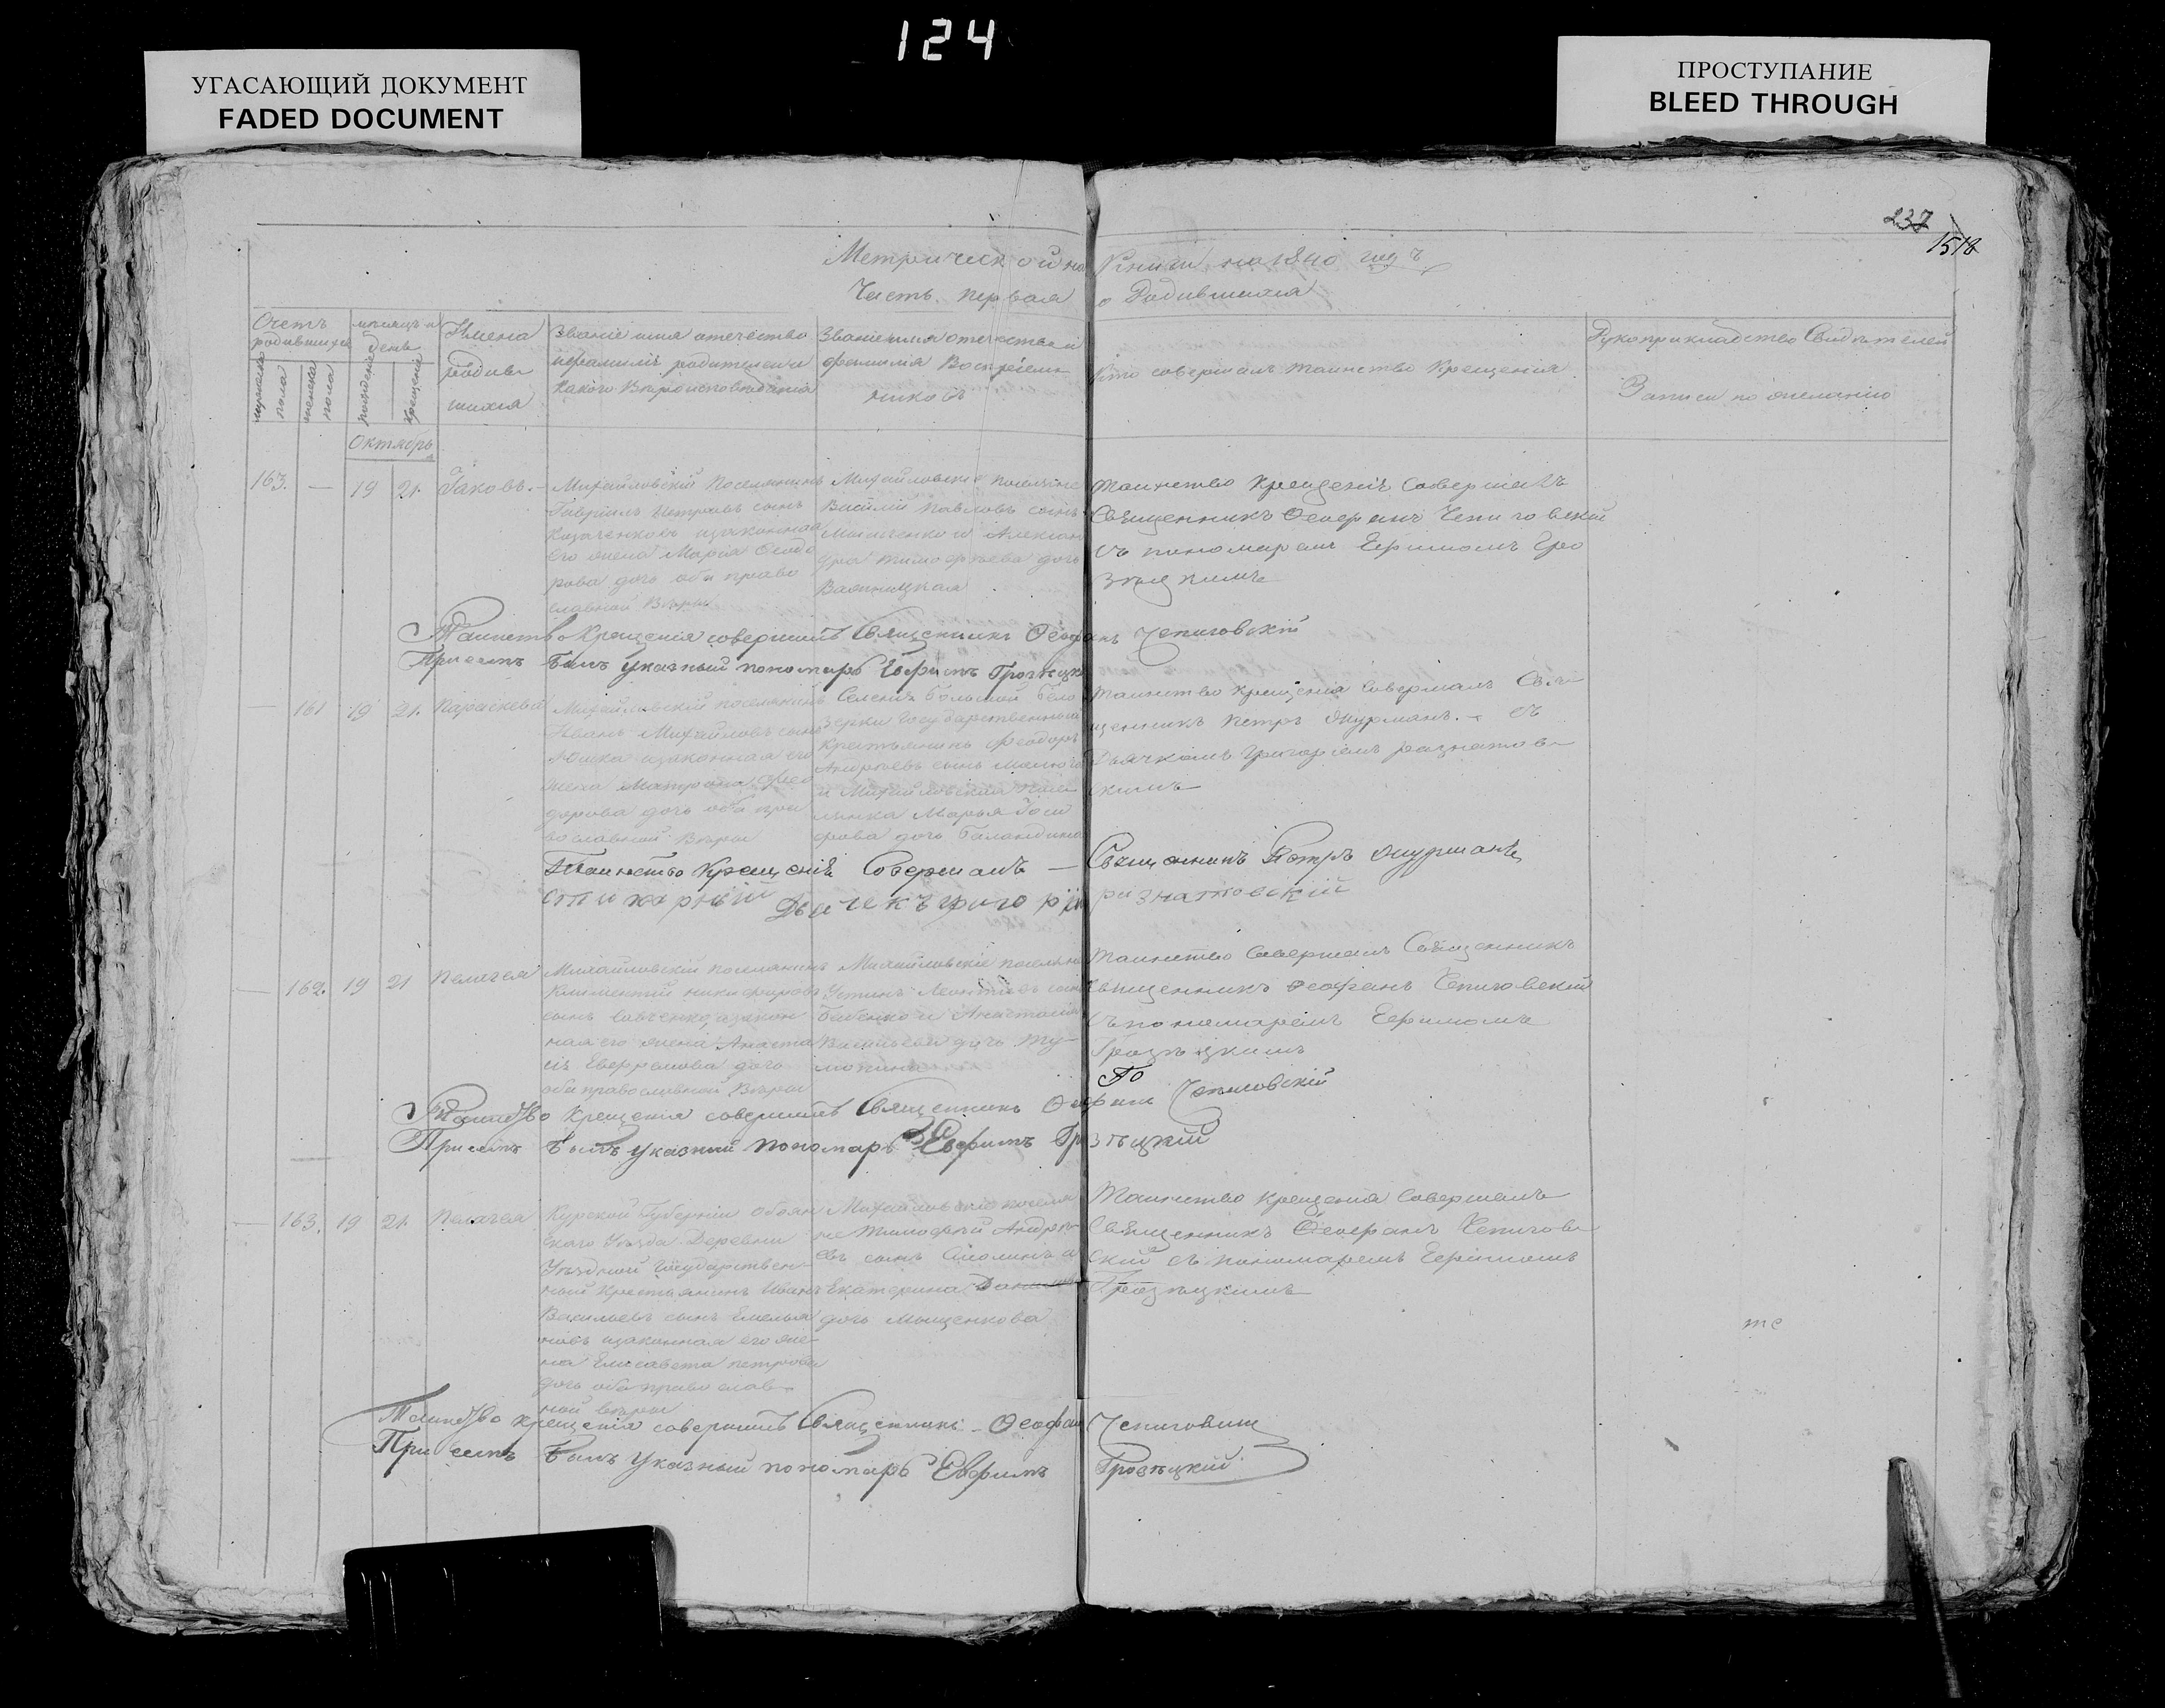 124
УГАСАЮЩИЙ ДОКУМЕНТ
FADED DOCUMENT
ПРОСТУПАНИЕ
BLEED THROUGH
237
1518
Метрической Книги на 1840 годъ
Часть первая о Родившихся
Счетъ родившихся
мужеска пола
женска пола
мѣсяцъ и день
рожденіе
крещеніе
Имена родившихся
Званіе имя отечество и фамиліе родителей и какого Вѣроисповѣданія
Званіе имя отечество и фамилія Воспріемниковъ
Кто совершалъ таинство Крещенія
Рукоприкладство Свидѣтелей
Записи по желанію
Октябрь
163. — 19 21. Іаковъ.
Михайловскій Поселянинъ
Гавріилъ Петровъ сынъ
Казаченковъ изаконная
его жена Марія Феодо
рова дочь оба право
славной Вѣры
Михайловскіе поселяне
Василій Павловъ сынъ
и Алексан
дра тимофѣева дочь
Таинство Крещенія Совершалъ
Священникъ Феофанъ Чепиговскій
Съ пономаремъ Ефимомъ Гро
зѣцкимъ
Таинство Крещенія совершилъ Священникъ Феофанъ Чепиговскій
При семъ былъ указный пономарь Евфимъ Грозѣцкій
— 161 19 21. Параскева
Михайловскій поселянинъ
Иванъ Михайловъ сынъ
изаконная его
жена Матрона Фео
дорова дочь оба пра
вославной Вѣры
Селенія Большой Бело
зерки Государственный
крестьянинъ Феодоръ
Андрѣевъ сынъ
и Михайловская посе
лянка Марья
дочь Баландина
Таинство крещенія Совершалъ Свя
щенникъ Петръ Шурманъ. — съ
Дьячкомъ Григоріемъ разнатов
скимъ
Таинство Крещенія Совершалъ — Священникъ Петръ Шурманъ
стихарный Дьячекъ григорій разнатовскій
— 162. 19 21 Пелагея
Михайловскій поселянинъ
Климентій никифоровъ
сынъ Савченко, изакон
ная его жена Анаста
сія Евфремова дочь
оба православной Вѣры
Михайловскіе поселяне
Устинъ Леонтіевъ сынъ
Бабенко и Анастасія
Васильева дочь
Таинство Совершалъ Священникъ
Священникъ Феофанъ Чепиговскій
Съ пономаремъ Ефимомъ
Грозѣцкимъ
Таинство Крещенія совершилъ Священникъ Феофанъ Чепиговскій
При семъ былъ указный пономарь Евфимъ Грозѣцкій
— 163. 19 21. Пелагея
Курской Губерніи Обоян
скаго Уѣзда Деревни
Государствен
ный Крестьянинъ Иванъ
Васильевъ сынъ Емелья
новъ изаконная его же
на Елисавета петрова
дочь оба православ
ной вѣры
Михайловскіе поселя
не Тимофѣй Андрѣ
евъ сынъ и
Екатерина
дочь Мищенкова
Таинство крещенія Совершалъ
Священникъ Феофанъ Чепигов
скій съ пономаремъ Ефимомъ
Грозѣцкимъ
те
Таинство крещенія совершилъ Священникъ Феофанъ Чепиговскій
При семъ былъ Указный пономарь Евфимъ Грозѣцкій